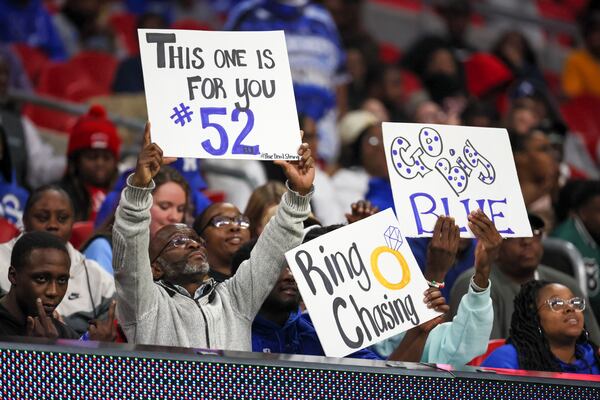 THIS ONE IS
FOR YOU
#52
Ring
Chasing
GO BIG
BLUE